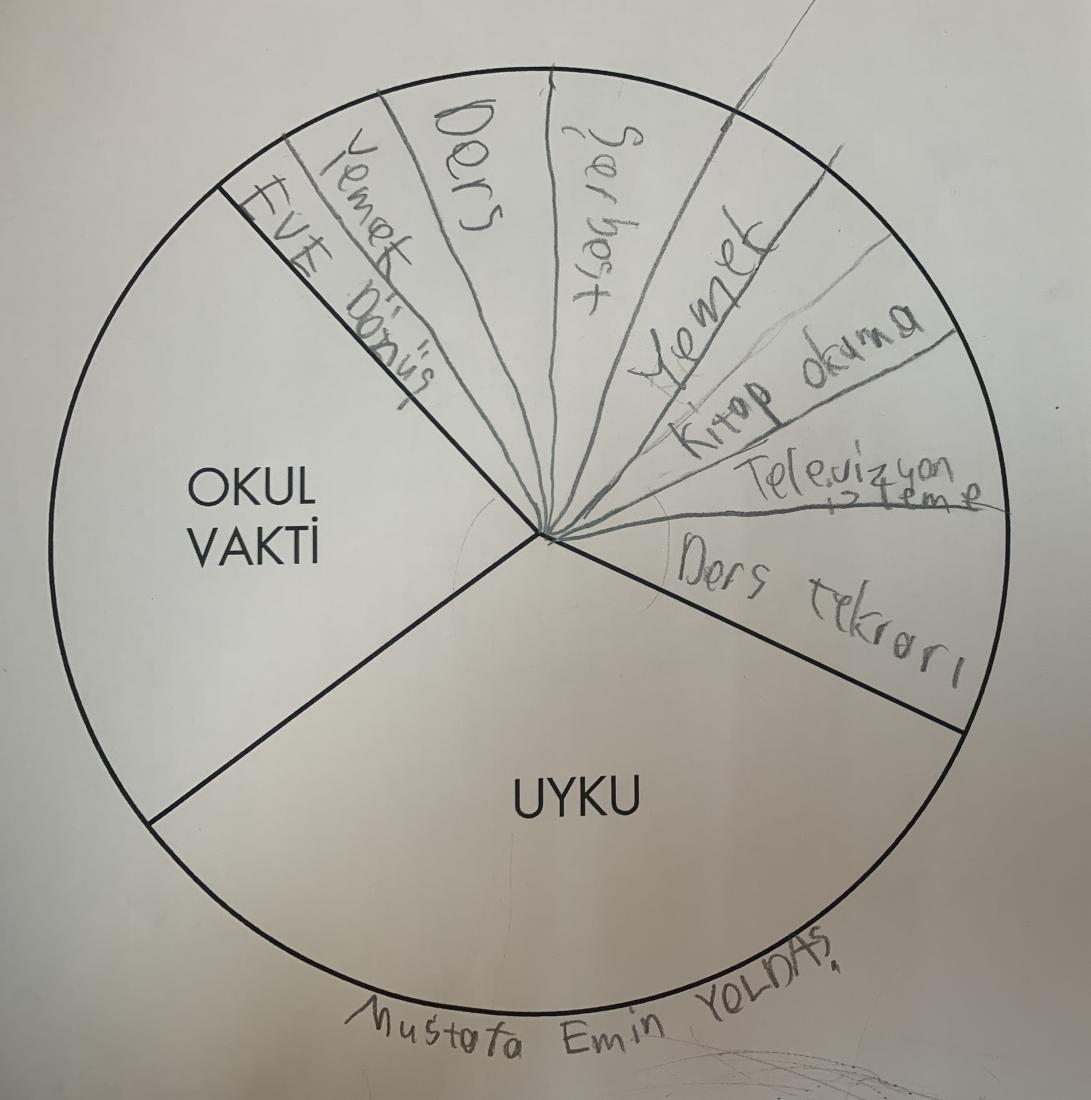 EVE Dönüş
Yemek
Ders
Şerbest
Yemek
Kitap okuma
Televizyon
izleme
Ders tekrarı
OKUL
VAKTİ
UYKU
Mustafa Emin YOLDAŞ